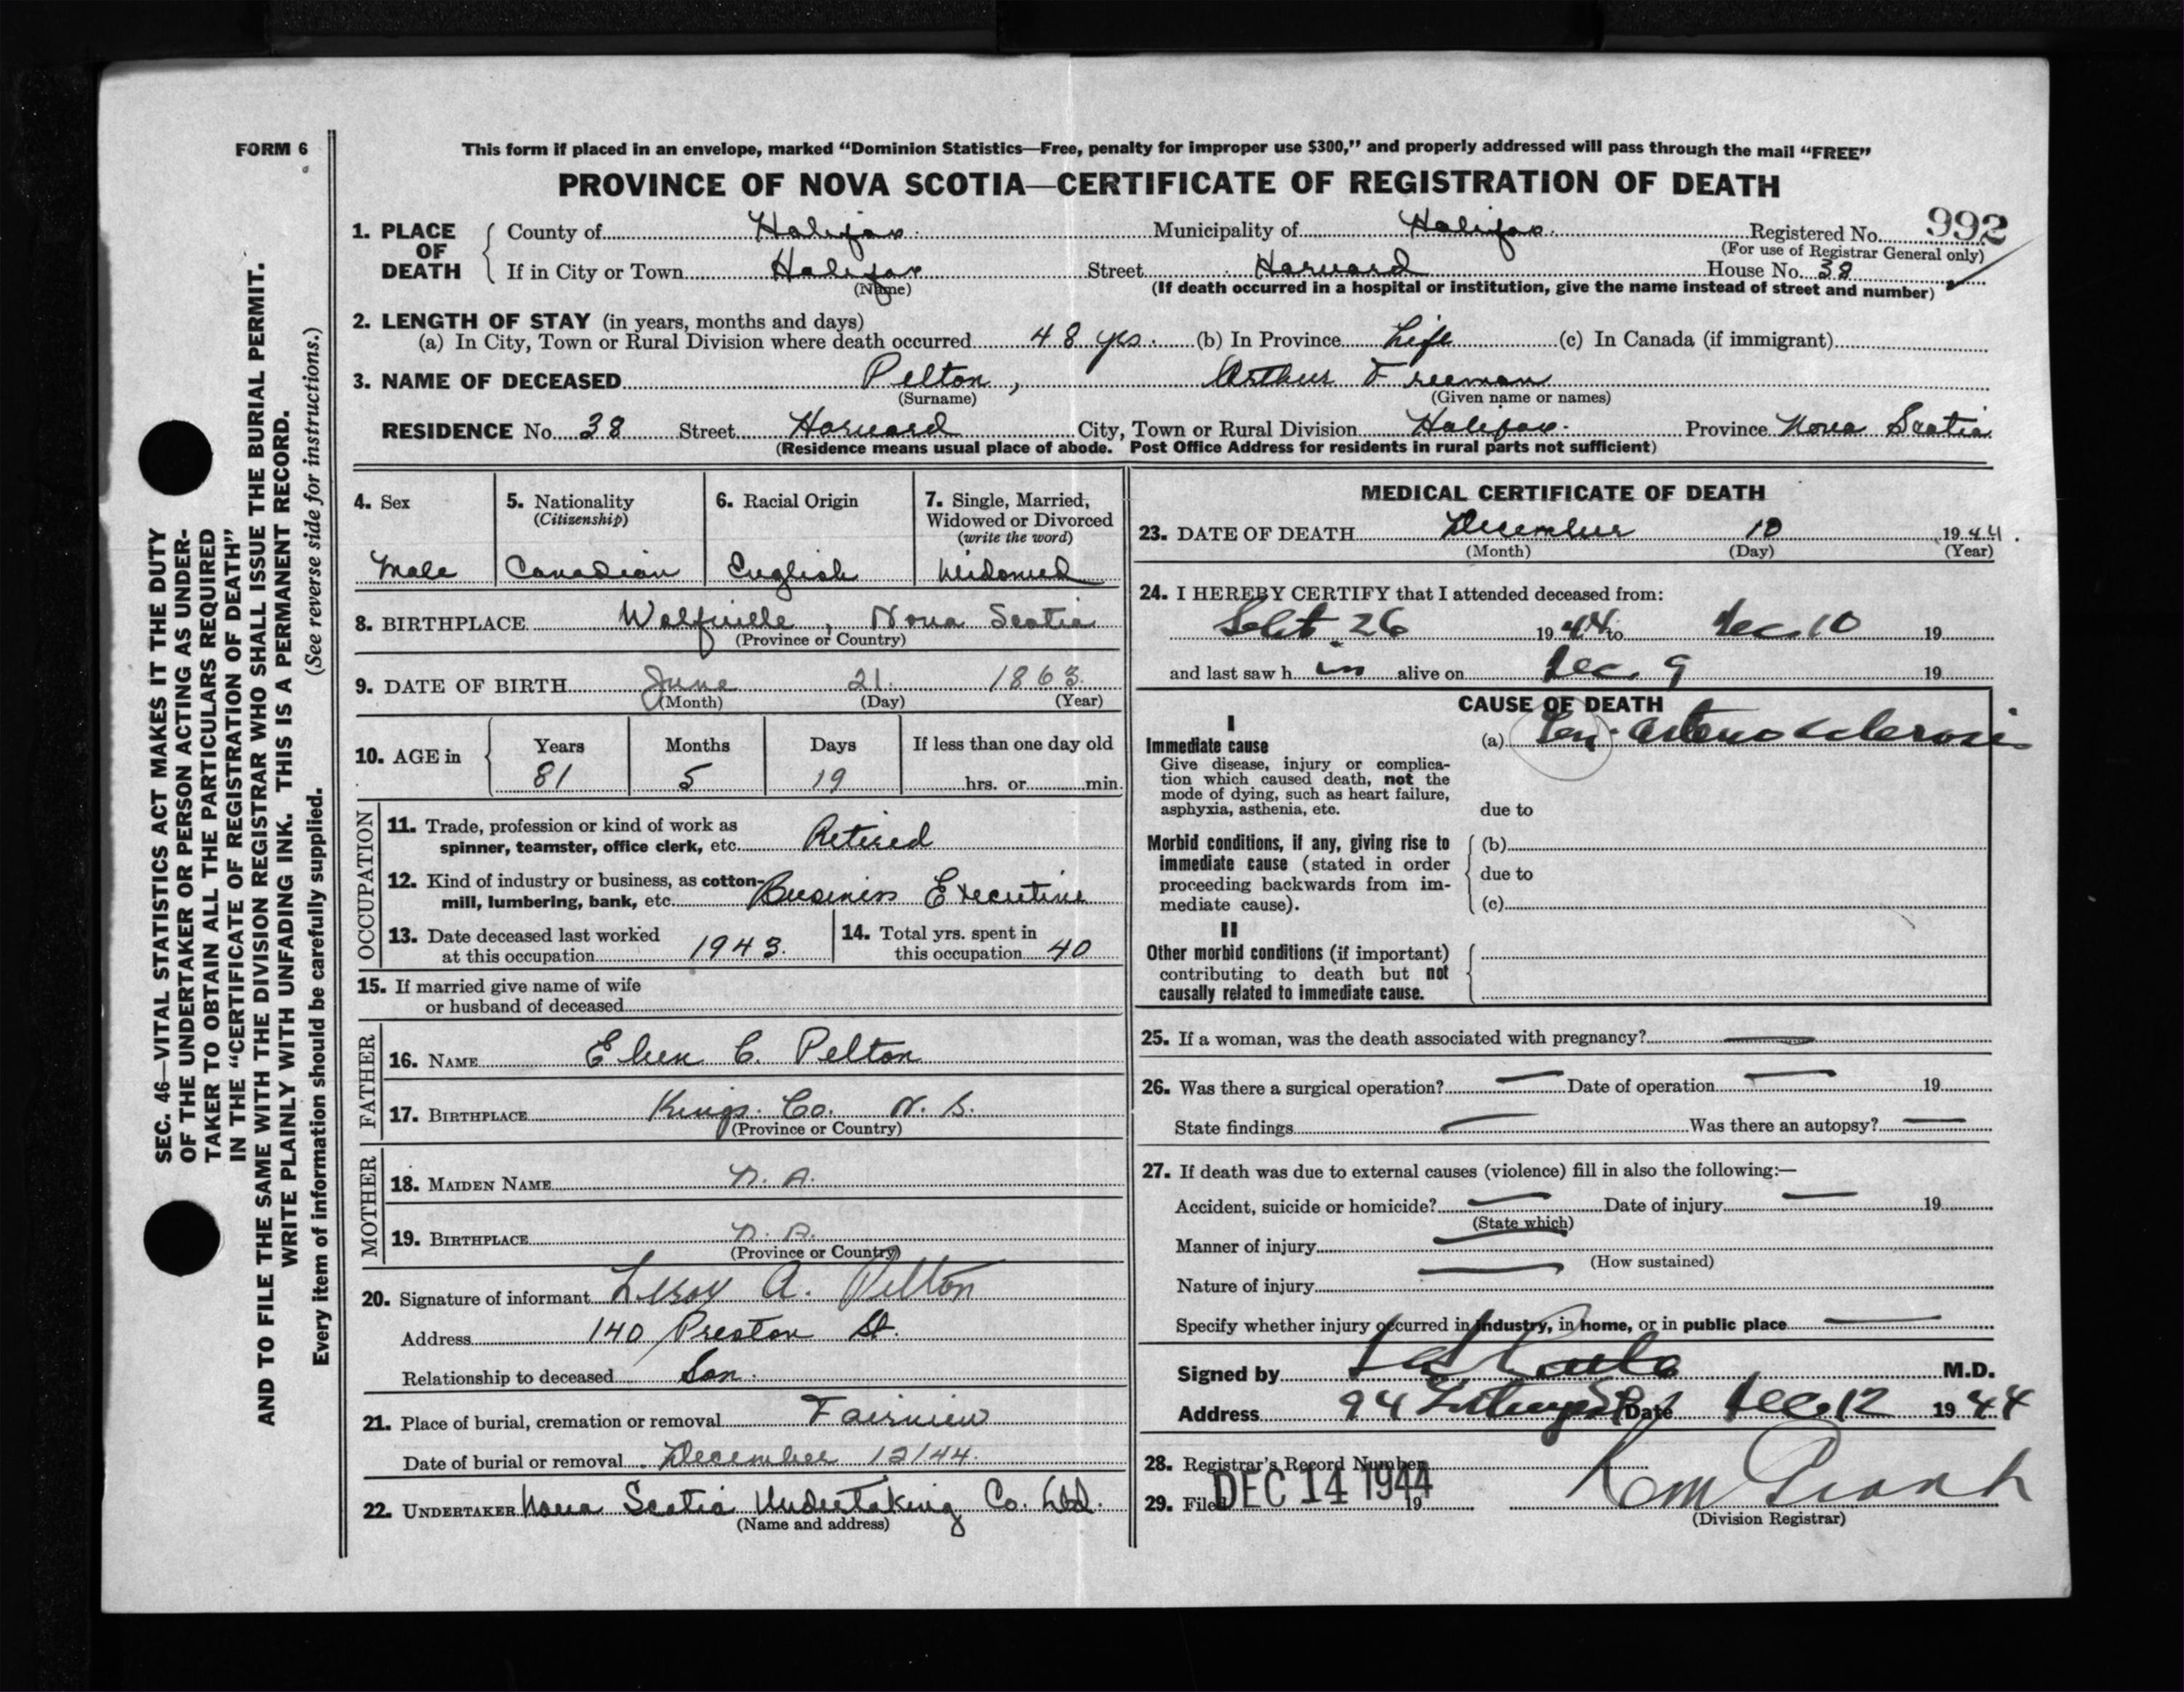 FORM 6
This form if placed in an envelope, marked “Dominion Statistics—Free, penalty for improper use $300,” and properly addressed will pass through the mail “FREE”
PROVINCE OF NOVA SCOTIA—CERTIFICATE OF REGISTRATION OF DEATH
1. PLACE OF DEATH
County of Halifax Municipality of Halifax Registered No. 992
(For use of Registrar General only)
If in City or Town Halifax Street Harvard House No. 38
(Name) (If death occurred in a hospital or institution, give the name instead of street and number)
2. LENGTH OF STAY (in years, months and days)
(a) In City, Town or Rural Division where death occurred 48 yrs. (b) In Province Life (c) In Canada (if immigrant)
3. NAME OF DECEASED Pelton, Arthur Freeman
(Surname) (Given name or names)
RESIDENCE No. 38 Street Harvard City, Town or Rural Division Halifax Province Nova Scotia
(Residence means usual place of abode. Post Office Address for residents in rural parts not sufficient)
4. Sex
Male
5. Nationality
(Citizenship)
Canadian
6. Racial Origin
English
7. Single, Married,
Widowed or Divorced
(write the word)
Widowed
8. BIRTHPLACE Wolfville, Nova Scotia
(Province or Country)
9. DATE OF BIRTH June 21 1863
(Month) (Day) (Year)
10. AGE in
Years Months Days If less than one day old
81 5 19 hrs. or min.
OCCUPATION
11. Trade, profession or kind of work as
spinner, teamster, office clerk, etc. Retired
12. Kind of industry or business, as cotton-
mill, lumbering, bank, etc. Business Executive
13. Date deceased last worked
at this occupation 1943.
14. Total yrs. spent in
this occupation 40
15. If married give name of wife
or husband of deceased
FATHER
16. NAME Eben C. Pelton
17. BIRTHPLACE Kings Co. N. S.
(Province or Country)
MOTHER
18. MAIDEN NAME N. A.
19. BIRTHPLACE N. A.
(Province or Country)
20. Signature of informant Leroy A. Pelton
Address 140 Preston St.
Relationship to deceased Son.
21. Place of burial, cremation or removal Fairview
Date of burial or removal December 12/44.
22. UNDERTAKER Nova Scotia Undertaking Co. Ltd.
(Name and address)
MEDICAL CERTIFICATE OF DEATH
23. DATE OF DEATH December 10 1944.
(Month) (Day) (Year)
24. I HEREBY CERTIFY that I attended deceased from:
Sept. 26 1944 to Dec 10 19
and last saw h im alive on Dec. 9 19
CAUSE OF DEATH
I
Immediate cause
Give disease, injury or complica-
tion which caused death, not the
mode of dying, such as heart failure,
asphyxia, asthenia, etc.
(a) Gen. arteriosclerosis
due to
Morbid conditions, if any, giving rise to
immediate cause (stated in order
proceeding backwards from im-
mediate cause).
(b)
due to
(c)
II
Other morbid conditions (if important)
contributing to death but not
causally related to immediate cause.
25. If a woman, was the death associated with pregnancy?
26. Was there a surgical operation? Date of operation 19
State findings Was there an autopsy?
27. If death was due to external causes (violence) fill in also the following:—
Accident, suicide or homicide? Date of injury 19
(State which)
Manner of injury
(How sustained)
Nature of injury
Specify whether injury occurred in industry, in home, or in public place
Signed by M.D.
Address 94 Date Dec. 12 1944
28. Registrar's Record Number
29. Filed DEC 14 1944 19
(Division Registrar)
SEC. 46—VITAL STATISTICS ACT MAKES IT THE DUTY
OF THE UNDERTAKER OR PERSON ACTING AS UNDER-
TAKER TO OBTAIN ALL THE PARTICULARS REQUIRED
IN THE “CERTIFICATE OF REGISTRATION OF DEATH”
AND TO FILE THE SAME WITH THE DIVISION REGISTRAR WHO SHALL ISSUE THE BURIAL PERMIT.
WRITE PLAINLY WITH UNFADING INK. THIS IS A PERMANENT RECORD.
Every item of information should be carefully supplied. (See reverse side for instructions.)